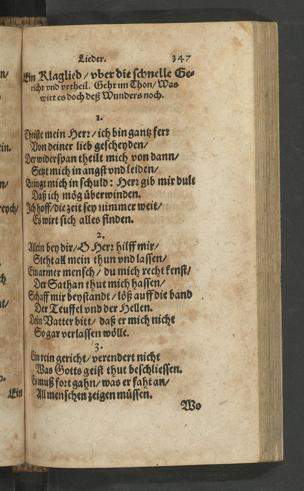 Lieder. 347
Ein Klaglied / vber die schnelle Ge-
richt vnd vrtheil. Geht im Thon / Was
wirt es doch deß Wunders noch.
1.
Christe mein Herr / ich bin gantz ferr
Von deiner lieb gescheyden /
Der widerspan theilt mich von dann /
Setzt mich in angst vnd leiden /
Bringt mich in schuld: Herr gib mir dult
Daß ich mög überwinden.
Ich hoff / die zeit sey nimmer weit /
Es wirt sich alles finden.
2.
Allein bey dir / O Herr hilff mir /
Steht all mein thun vnd lassen /
Ein armer mensch / du mich recht kenst /
Der Sathan thut mich hassen /
Schaff mir beystandt / löß auff die band
Der Teuffel vnd der Hellen.
Dein Vatter bitt / daß er mich nicht
So gar verlassen wölle.
3.
Ein rein gericht / verendert nicht
Was Gotts geist thut beschliessen.
Es muß fort gahn / was er faht an /
All menschen zeigen müssen.
Wo